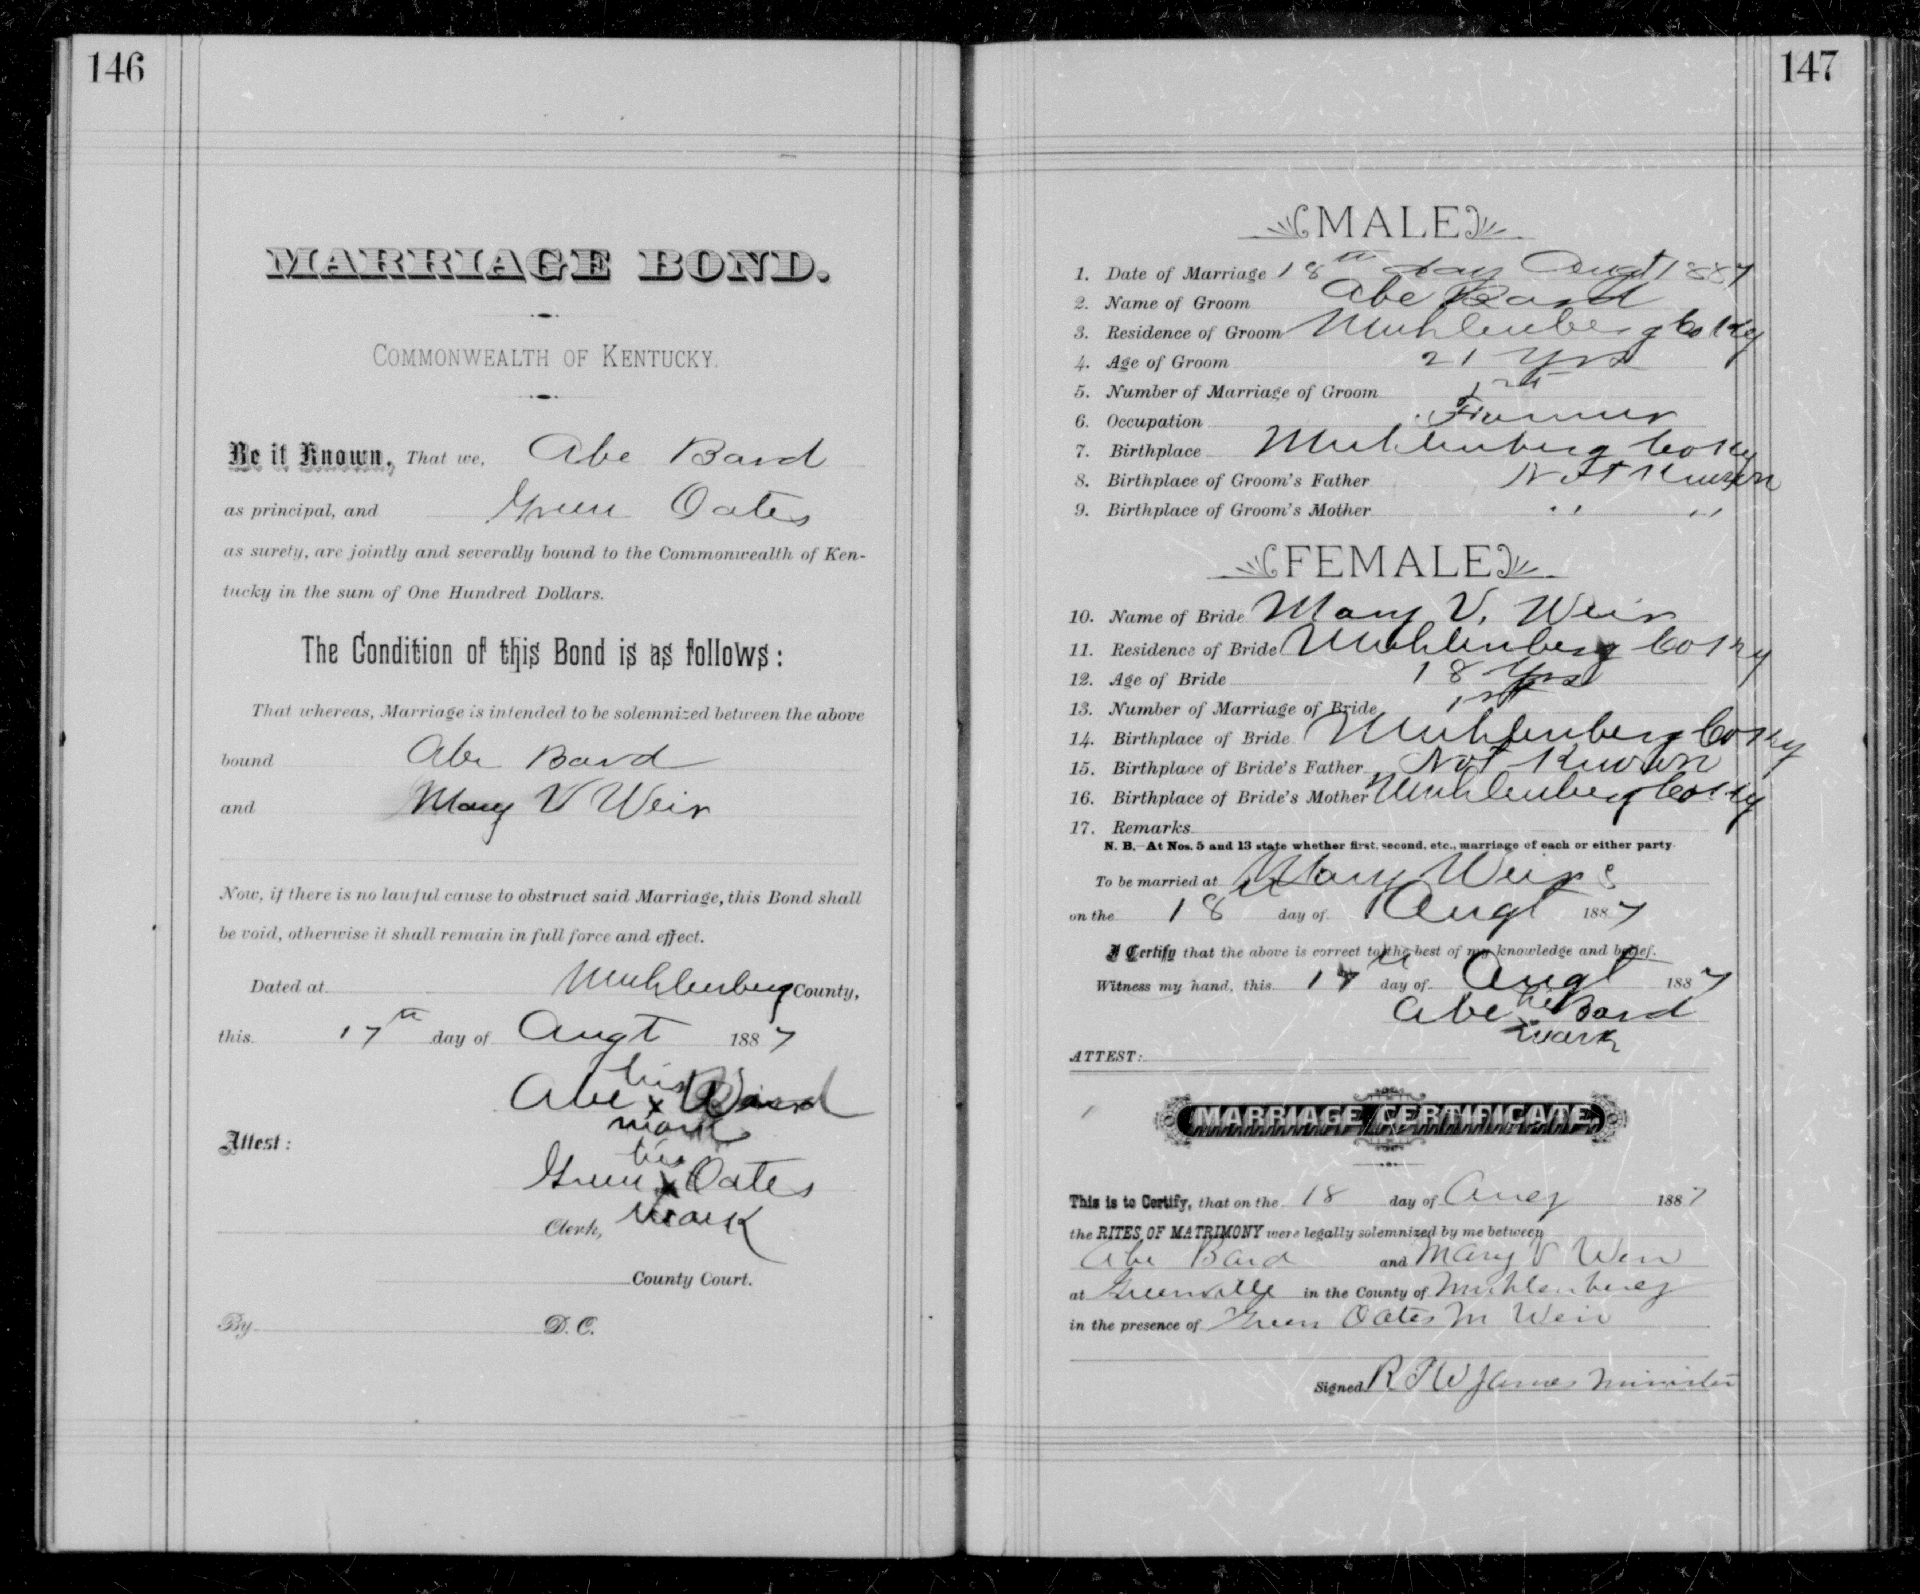 146
MARRIAGE BOND.
COMMONWEALTH OF KENTUCKY.
Be it Known, That we, Abe Bard
as principal, and Green Oates
as surety, are jointly and severally bound to the Commonwealth of Ken-
tucky in the sum of One Hundred Dollars.
The Condition of this Bond is as follows:
That whereas, Marriage is intended to be solemnized between the above
bound Abe Bard
and Mary V Weir
Now, if there is no lawful cause to obstruct said Marriage, this Bond shall
be void, otherwise it shall remain in full force and effect.
Dated at Muhlenberg County,
this 17th day of Augt 1887
his
Abe x Bard
mark
Attest:
his
Green x Oates
mark
Clerk,
County Court.
By D. C.
147
MALE
1. Date of Marriage 18th day Augt 1887
2. Name of Groom Abe Bard
3. Residence of Groom Muhlenberg Co Ky
4. Age of Groom 21 Yrs
5. Number of Marriage of Groom 1st
6. Occupation Farmer
7. Birthplace Muhlenberg Co Ky
8. Birthplace of Groom's Father Not Known
9. Birthplace of Groom's Mother " "
FEMALE
10. Name of Bride Mary V. Weir
11. Residence of Bride Muhlenberg Co Ky
12. Age of Bride 18 Yrs
13. Number of Marriage of Bride 1st
14. Birthplace of Bride Muhlenberg Co Ky
15. Birthplace of Bride's Father Not Known
16. Birthplace of Bride's Mother Muhlenberg Co Ky
17. Remarks
N. B.—At Nos. 5 and 13 state whether first, second, etc., marriage of each or either party.
To be married at Mary Weirs
on the 18th day of Augt 1887
I Certify that the above is correct to the best of my knowledge and belief.
Witness my hand, this 17th day of Augt 1887
Abe his Bard
x mark
ATTEST:
MARRIAGE CERTIFICATE.
This is to Certify, that on the 18 day of Aug 1887
the RITES OF MATRIMONY were legally solemnized by me between
Abe Bard and Mary V Weir
at Greenville in the County of Muhlenberg
in the presence of Green Oates M Weir
Signed R T W James Minister